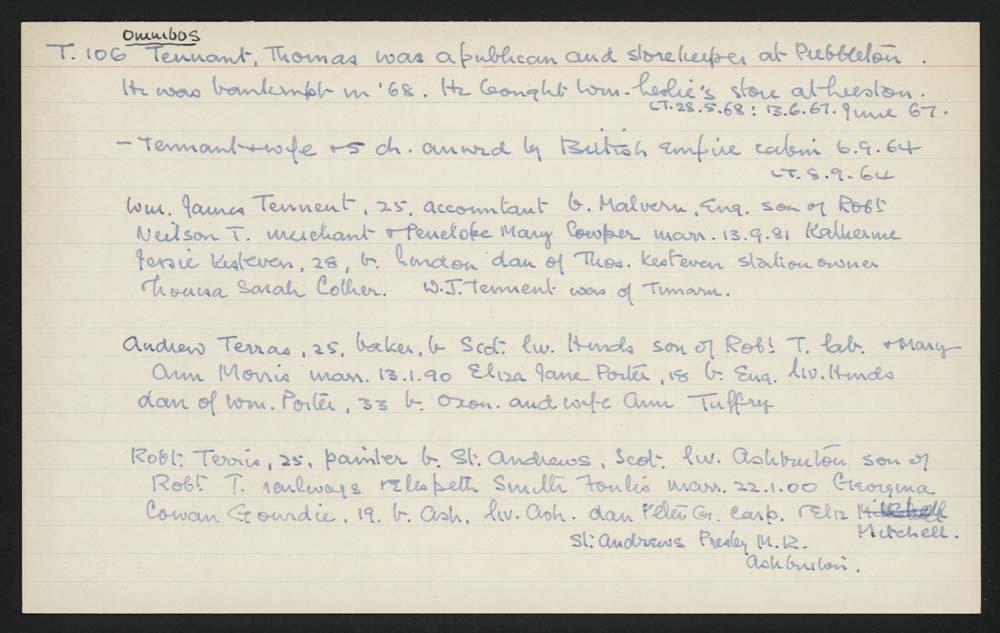 OMNIBOS
T. 106 Tennant, Thomas was a publican and storekeeper at Prebbleton.
He was bankrupt in '68. He bought Wm. Leslie's store at Leeston.
LT. 28.5.68 : 13.6.67. June 67.
- Tennant + wife + 5 ch. arrived by British Empire cabin 6.9.64
LT. 8.9.64
Wm. James Tennent, 25, accountant b. Malvern, Eng. son of Robt
Neilson T. merchant + Penelope Mary Cowper marr. 13.9.81 Katherine
Jessie Kesteven, 28, b. London dau of Thos. Kesteven station owner
Sarah Collier. W.J. Tennent was of Timaru.
Andrew Terras, 25, baker, b Scot. liv. Hinds son of Robt T. lab. + Mary
Ann Morris marr. 13.1.90 Eliza Jane Porter, 18 b. Eng. liv. Hinds
dau of Wm. Porter, 33 b. Oxon. and wife Ann Tuffry
Robt. Terris, 25, painter b. St. Andrews, Scot. liv. Ashburton son of
Robt T. railways + Elspeth Smith Foulis marr. 22.1.00 Georgina
Cowan Gourdie, 19. b. Ash. liv. Ash. dau Peter G. carp. + Eliz
Mitchell.
St. Andrews Presby M.R.
Ashburton.